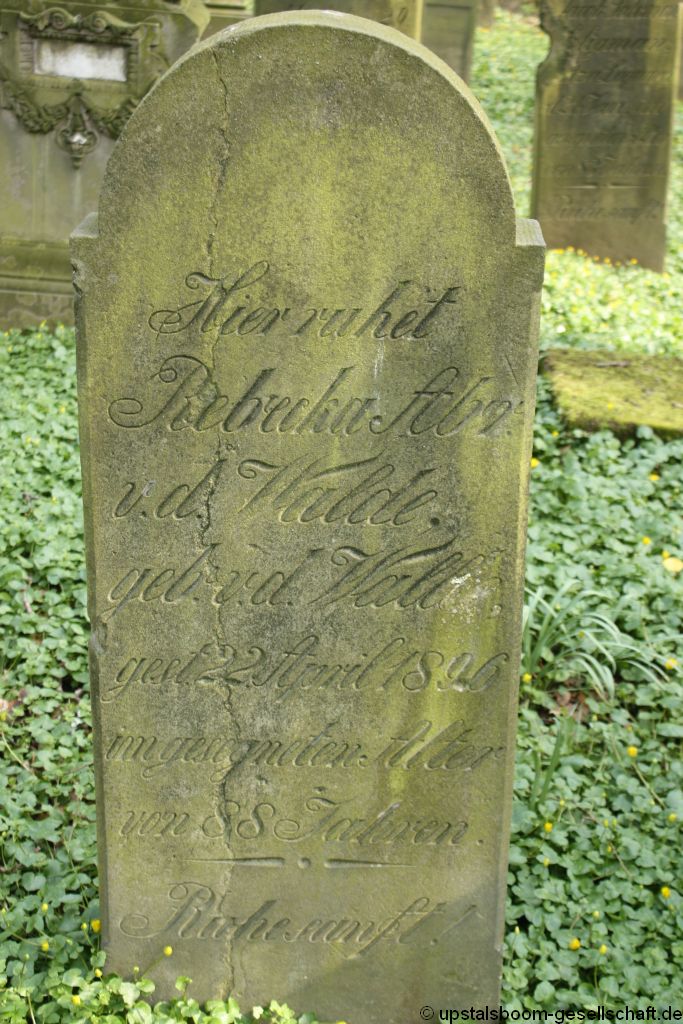 Hier ruhet
Rebecka Abr.
v. d. Walde.
geb. v. d. Walde,
gest. 22. April 1896
im gesegneten Alter
von 88 Jahren.
Ruhe sanft!
© upstalsboom-gesellschaft.de